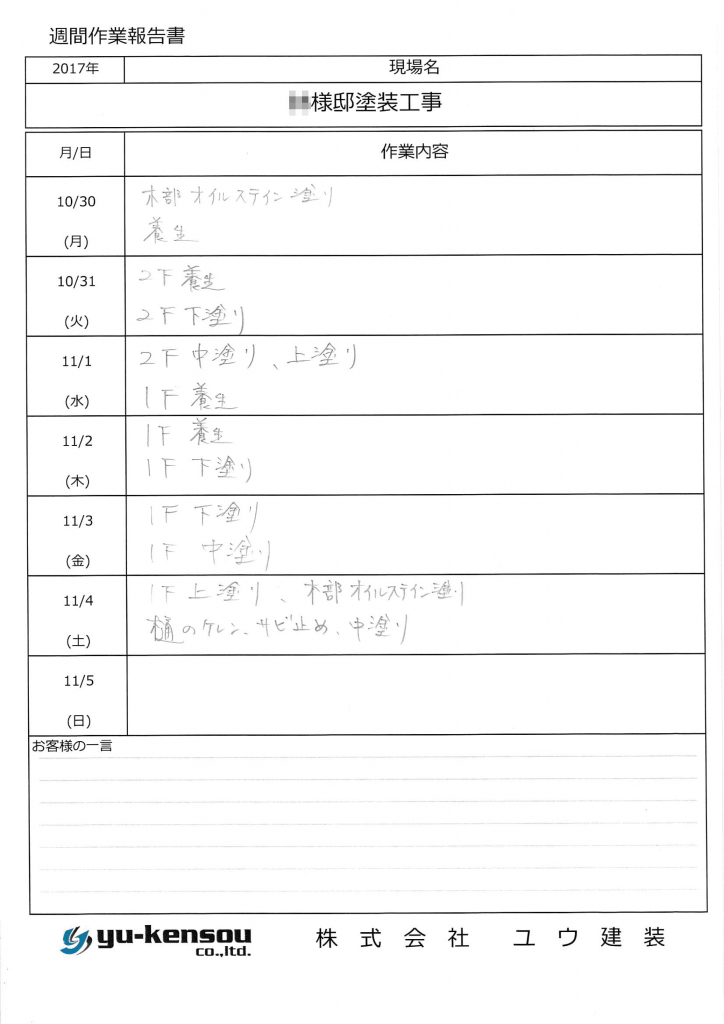 週間作業報告書
2017年 現場名
様邸塗装工事
月/日 作業内容
10/30 木部 オイルステイン塗り
(月) 養生
10/31 2F 養生
(火) 2F 下塗り
11/1 2F 中塗り、上塗り
(水) 1F 養生
11/2 1F 養生
(木) 1F 下塗り
11/3 1F 下塗り
(金) 1F 中塗り
11/4 1F 上塗り、木部オイルステイン塗り
(土) 樋のケレン、サビ止め、中塗り
11/5
(日)
お客様の一言
yu-kensou 株式会社 ユウ建装
co.,ltd.